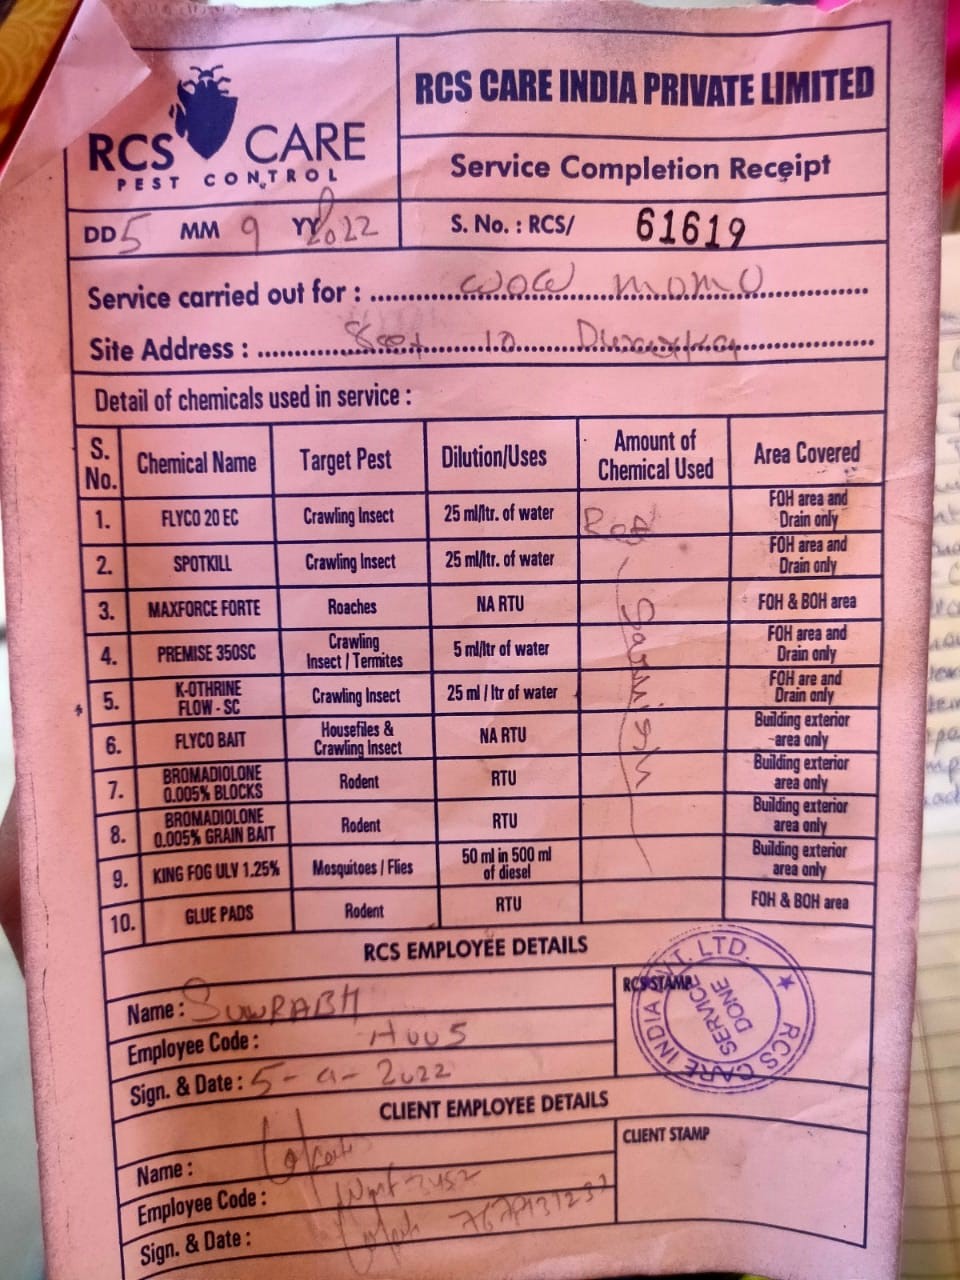 RCS CARE
PEST CONTROL
RCS CARE INDIA PRIVATE LIMITED
Service Completion Receipt
DD 5 MM 9 YY 2022
S. No. : RCS/ 61619
Service carried out for : WOW MOMO
Site Address : Sect 10 Dwarka
Detail of chemicals used in service :
S. No. Chemical Name Target Pest Dilution/Uses Amount of Chemical Used Area Covered
1. FLYCO 20 EC Crawling Insect 25 ml/ltr. of water FOH area and Drain only
2. SPOTKILL Crawling Insect 25 ml/ltr. of water FOH area and Drain only
3. MAXFORCE FORTE Roaches NA RTU FOH & BOH area
4. PREMISE 350SC Crawling Insect / Termites 5 ml/ltr of water FOH area and Drain only
5. K-OTHRINE FLOW - SC Crawling Insect 25 ml / ltr of water FOH are and Drain only
6. FLYCO BAIT Housefiles & Crawling Insect NA RTU Building exterior area only
7. BROMADIOLONE 0.005% BLOCKS Rodent RTU Building exterior area only
8. BROMADIOLONE 0.005% GRAIN BAIT Rodent RTU Building exterior area only
9. KING FOG ULV 1.25% Mosquitoes / Flies 50 ml in 500 ml of diesel Building exterior area only
10. GLUE PADS Rodent RTU FOH & BOH area
RCS EMPLOYEE DETAILS
Name :
Employee Code :
Sign. & Date : 5-9-2022
RCS STAMP
RCS CARE INDIA PVT. LTD.
SERVICE DONE
CLIENT EMPLOYEE DETAILS
Name :
Employee Code :
Sign. & Date :
CLIENT STAMP